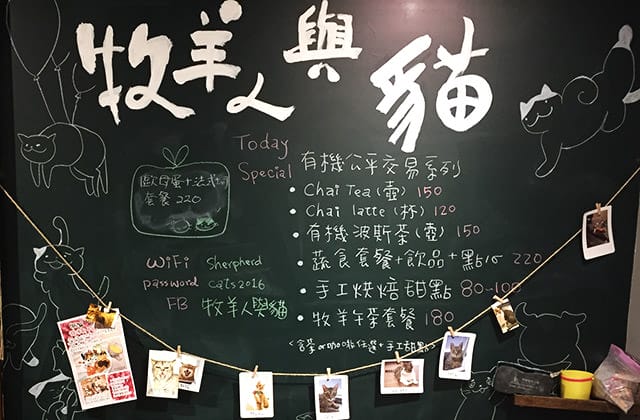 牧羊人與貓
Today
Special
有機公平交易系列
• Chai Tea (壺) 150
• Chai latte (杯) 120
• 有機波斯茶 (壺) 150
• 蔬食套餐+飲品+點心 220
• 手工烘焙甜點 80-100
• 牧羊午茶套餐 180
歐姆蛋+法式
套餐 220
WiFi Sherpherd
password cats2016
FB 牧羊人與貓